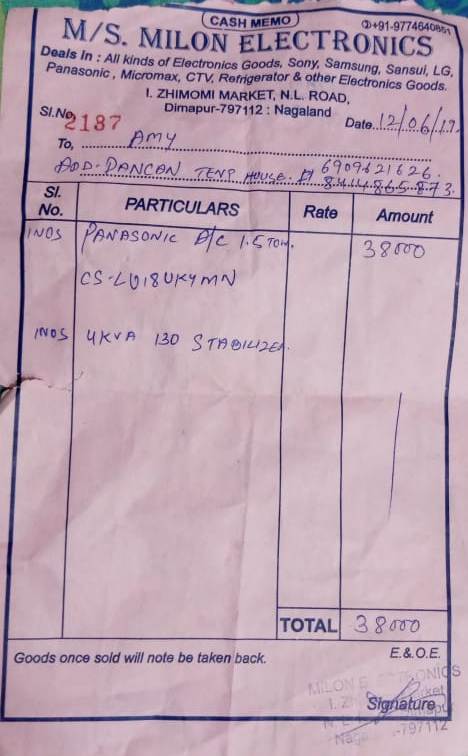 CASH MEMO
✆+91-9774640851
M/S. MILON ELECTRONICS
Deals in : All kinds of Electronics Goods, Sony, Samsung, Sansui, LG,
Panasonic , Micromax, CTV, Refrigerator & other Electronics Goods.
I. ZHIMOMI MARKET, N.L. ROAD,
Dimapur-797112 : Nagaland
Sl.No. 2187
Date 12/06/19.
To, AMY
ADD-DANCAN TENP HOUSE. 6909621626.
8414865873.
Sl. No. PARTICULARS Rate Amount
1NOS PANASONIC A/C 1.5 TON. 38000
CS-LU18UKYMN
1NOS 4KVA 130 STABILIZER.
TOTAL 38000
Goods once sold will note be taken back.
E.& O.E.
MILON
Signature
797112